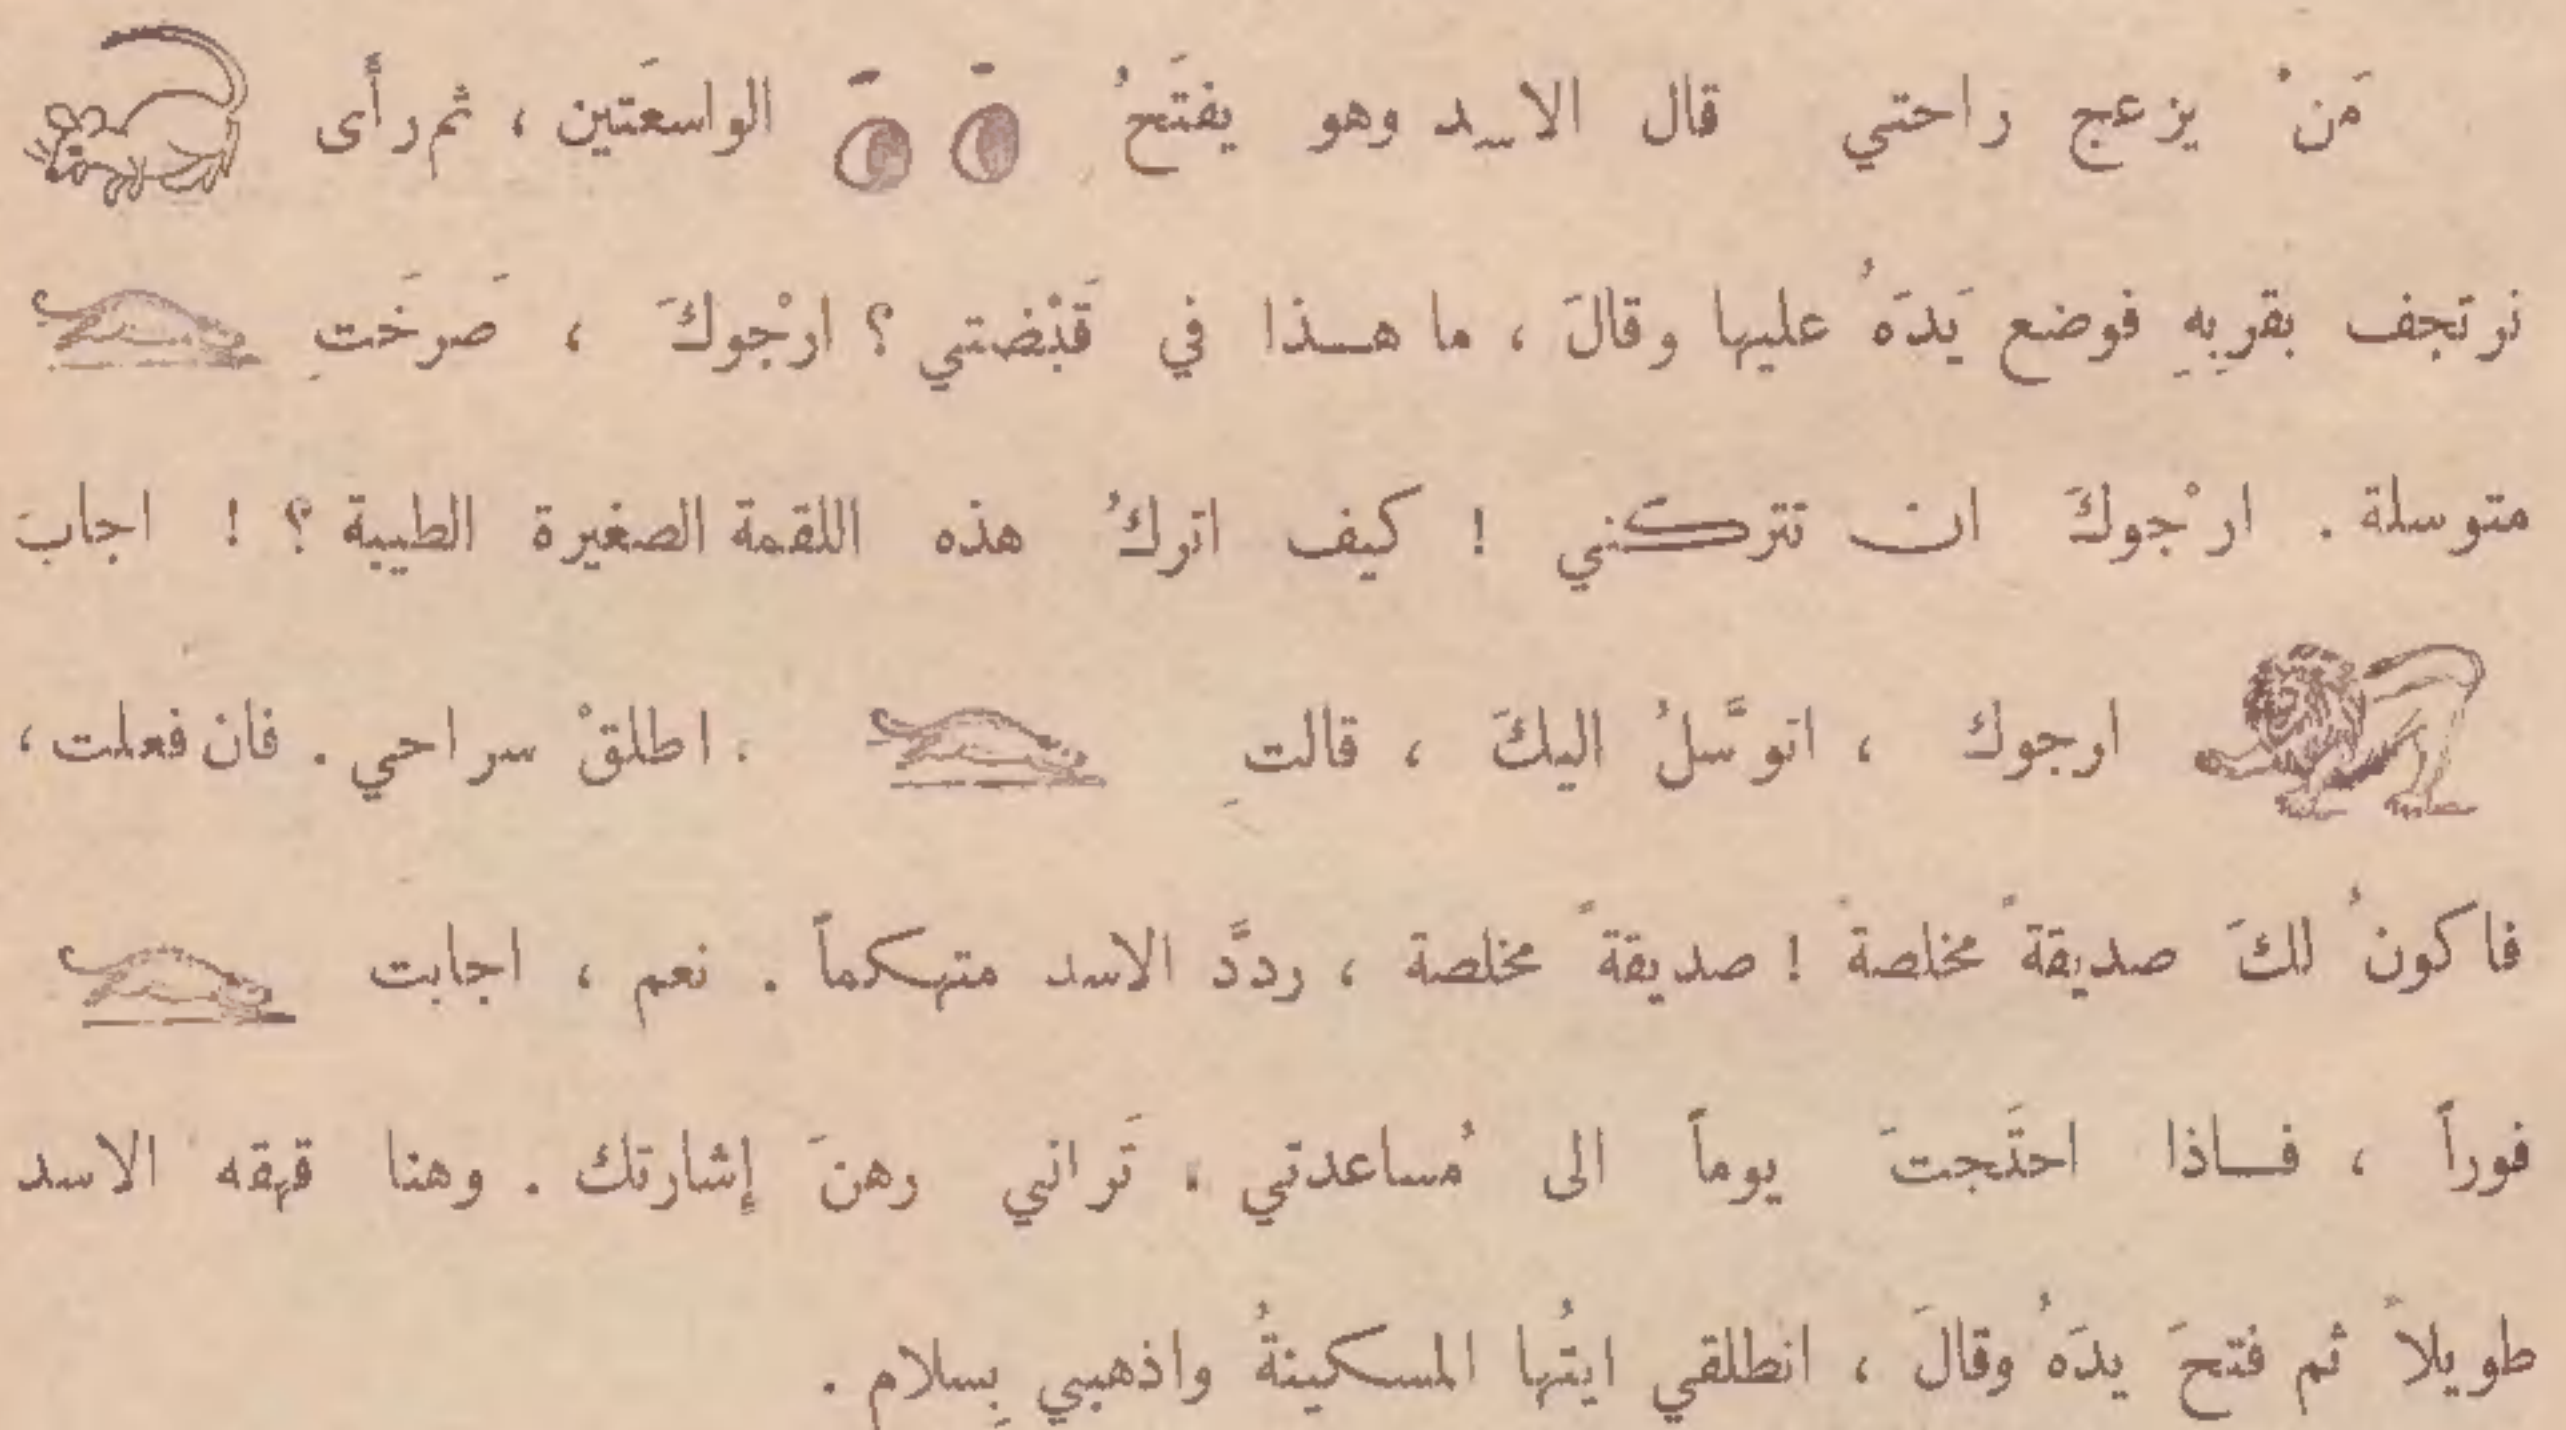 مَنْ يزعج راحتي قال الاسد وهو يفتَحُ الواسعَتين ، ثم رأى
ترتجف بقربِهِ فوضع يَدَهُ عليها وقالَ ، ما هـذا في قَبْضتي ؟ ارْجوكَ ، صَرخَتِ
متوسلة . ارْجوكَ ان تتركني ! كيف اتركُ هذه اللقمة الصغيرة الطيبة ؟ ! اجابَ
ارجوك ، اتوسَّلُ اليكَ ، قالتِ . اطلقْ سراحي . فان فعلت ،
فاكونُ لكَ صديقةً مخلصةً ! صديقةً مخلصة ، ردَّد الاسد متهكماً . نعم ، اجابت
فوراً ، فـاذا احتَجتَ يوماً الى مُساعدتي ، تَراني رهنَ إشارتك . وهنا قهقه الاسد
طويلاً ثم فتحَ يدَهُ وقالَ ، انطلقي ايتُها المسكينةُ واذهبي بِسلام .